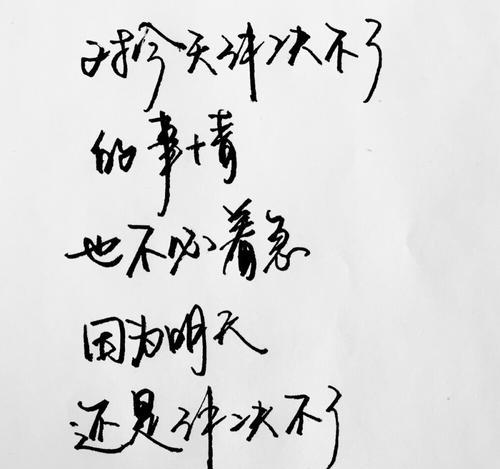 对今天解决不了
的事情
也不必着急
因为明天
还是解决不了